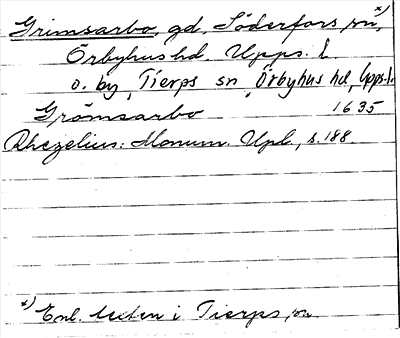 Grimsarbo, gd, Söderfors sn, *)
Örbyhus hd. Upps. l.
o. by, Tierps sn, Örbyhus hd, Upps. l.
Grömsarbo 1635
Rhezelius: Monum. Upl., s. 188.
*) Enl. texten i Tierps sn.